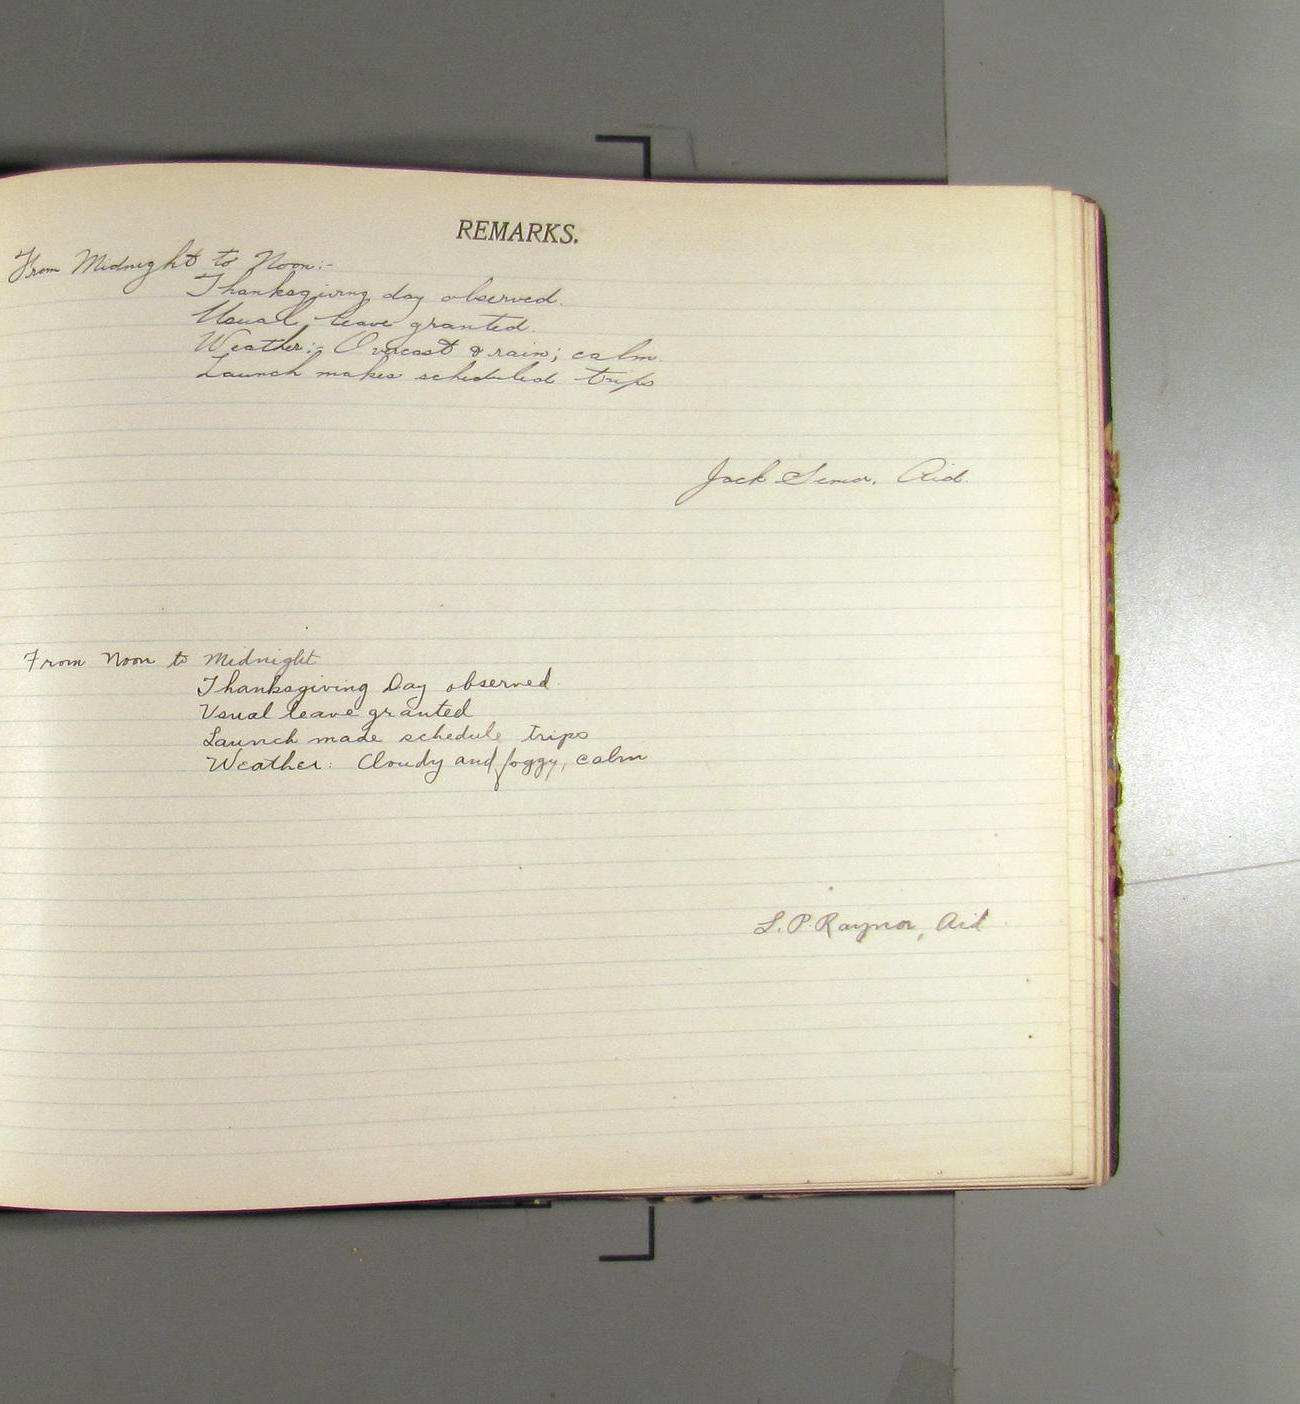 REMARKS.
From Midnight to Noon:-
Thanksgiving day observed.
Usual leave granted.
Weather:- Overcast & rain; calm.
Launch makes scheduled trips
Jack Senior, Aid.
From Noon to Midnight
Thanksgiving Day observed
Usual leave granted
Launch made schedule trips
Weather: Cloudy and foggy, calm
L. P. Raynor, Aid